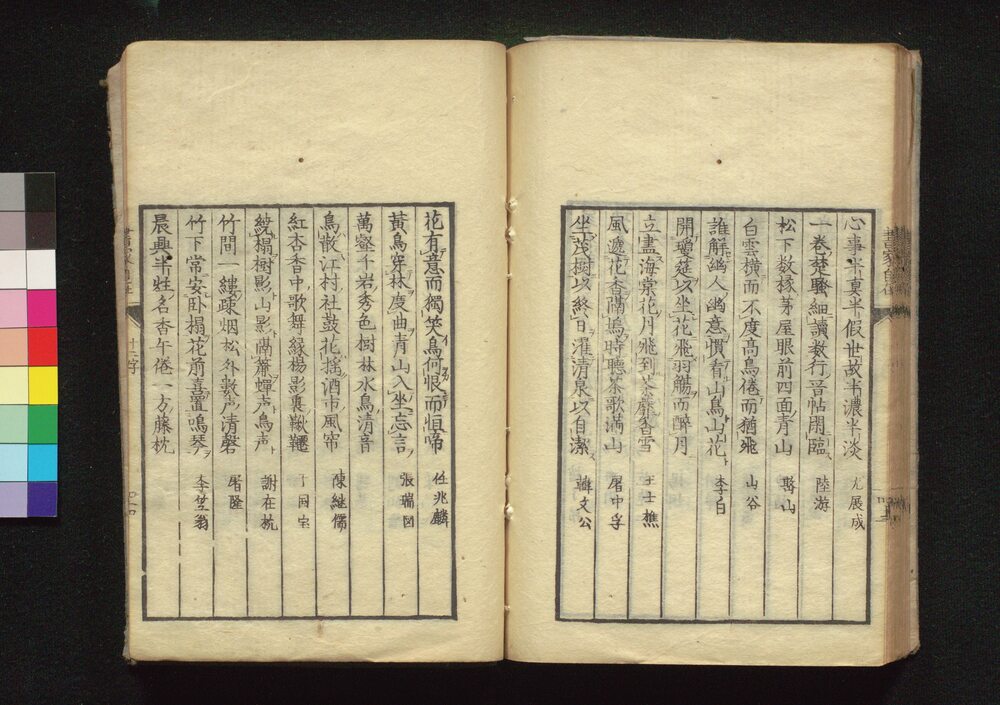 心事半真半假世故半濃半淡 尤展成
一卷楚騷細讀数行晋帖閑臨 陸游
松下数椽茅屋眼前四面青山
白雲横而不度髙鳥倦而猶飛 山谷
誰解幽人幽意慣看山鳥山花 李白
開瓊筵以坐花飛羽觴而醉月
立盡海棠花月飛到荼蘼香雪 王士樵
風遞花香隔塢時聴茶歌满山 屠中孚
坐茂樹以終日濯清泉以自潔 韓文公
花有意而獨笑鳥何恨而恒啼 任兆麟
黃鳥穿林度曲青山入坐忘言 張瑞図
萬壑千岩秀色樹林水鳥清音
鳥散江村社鼓花摇酒市風帘 陳継儒
紅杏香中歌舞緑楊影裏鞦韆
繞榻樹影山影隔簾蟬声鳥声 謝在杭
竹間一縷疎烟松外数声清磬 屠隆
竹下常安卧榻花前喜疊鳴琴 李笠翁
晨興半炷名香午倦一方藤枕
十二字